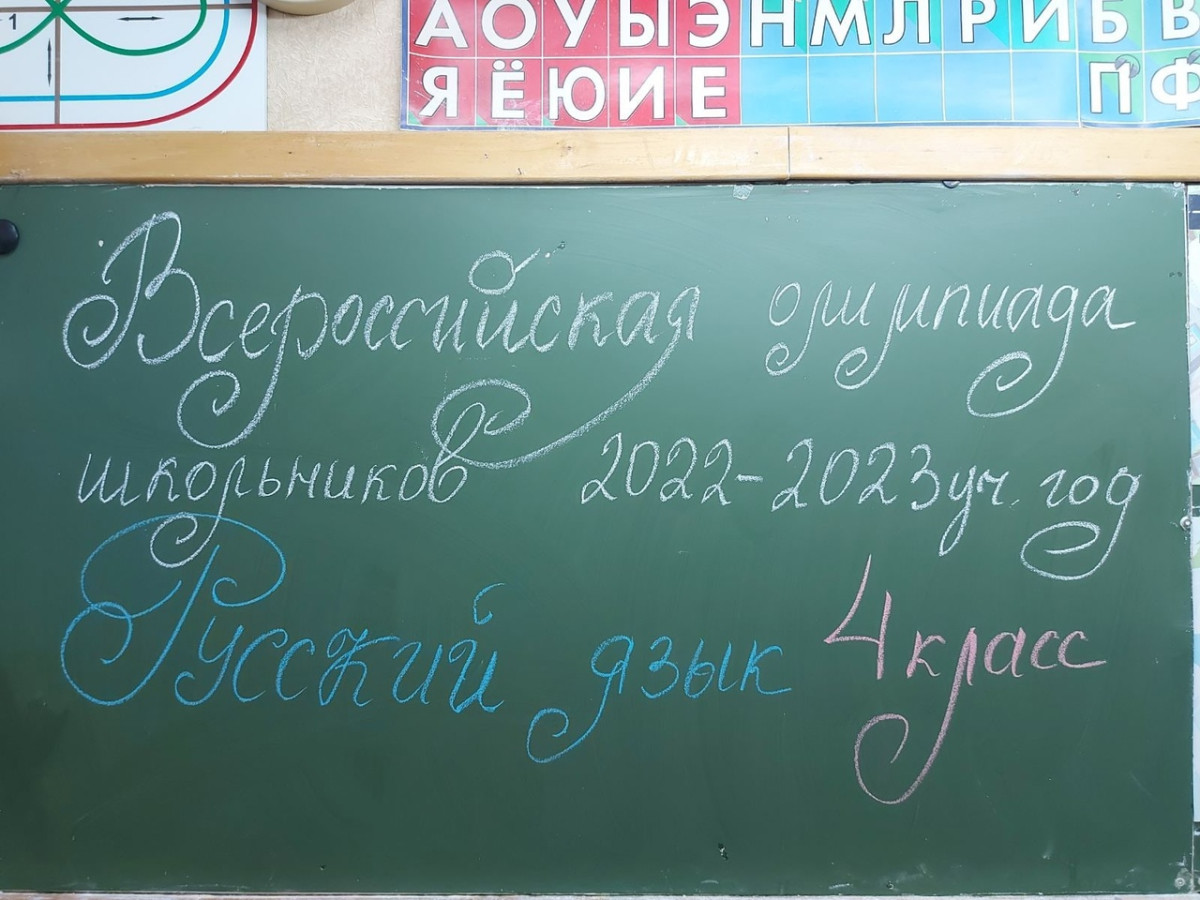 1
А О У Ы Э Н М Л Р Й Б В
Я Ё Ю И Е П Ф
Всероссийская олимпиада
школьников 2022-2023 уч. год
Русский язык 4 класс